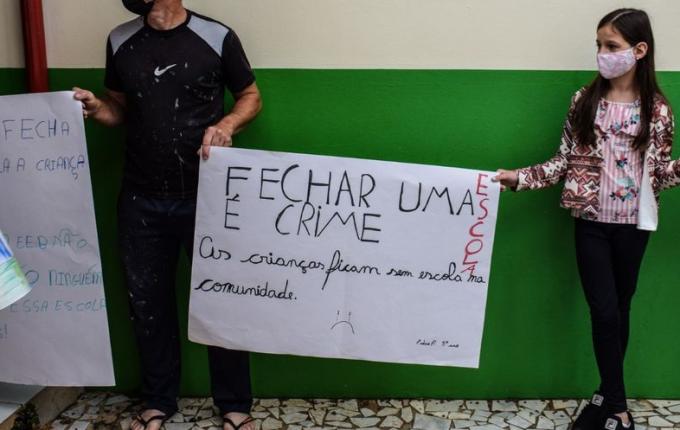 FECHA
A A CRIANÇA
EED NÃO
O NINGUÉM
ESSA ESCOLA
!
FECHAR UMA ESCOLA
É CRIME
As crianças ficam sem escola na
comunidade.
5º ano